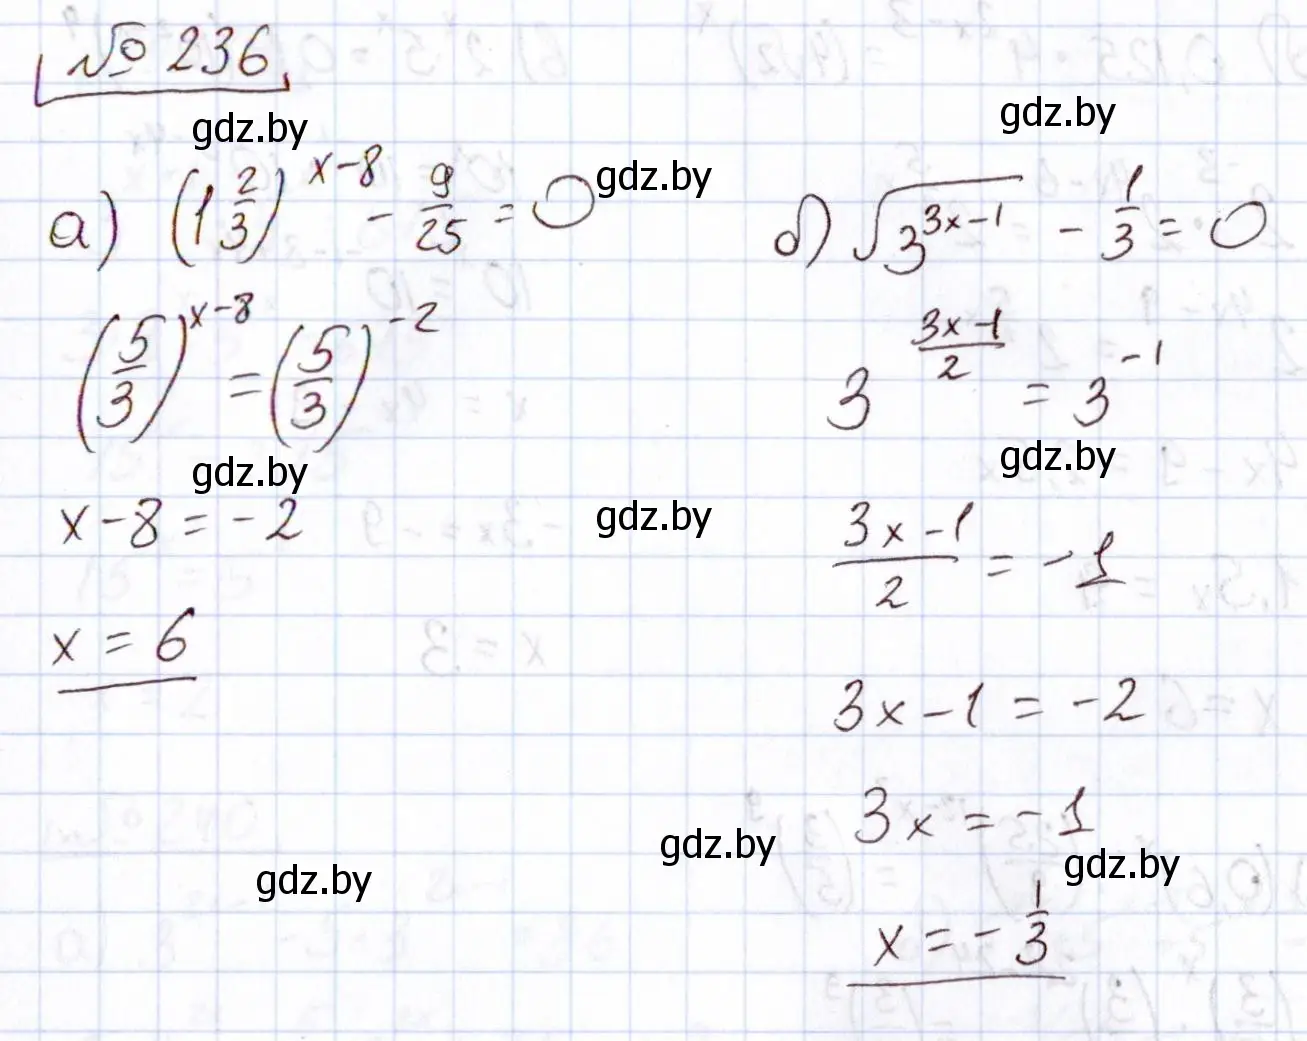 № 236
gdz.by
gdz.by
gdz.by
а) (1 2/3)^(x-8) - 9/25 = 0
б) √(3^(3x-1)) - 1/3 = 0
(5/3)^(x-8) = (5/3)^(-2)
3^((3x-1)/2) = 3^(-1)
gdz.by
gdz.by
gdz.by
x-8 = -2
(3x-1)/2 = -1
x = 6
3x-1 = -2
3x = -1
gdz.by
gdz.by
gdz.by
x = -1/3